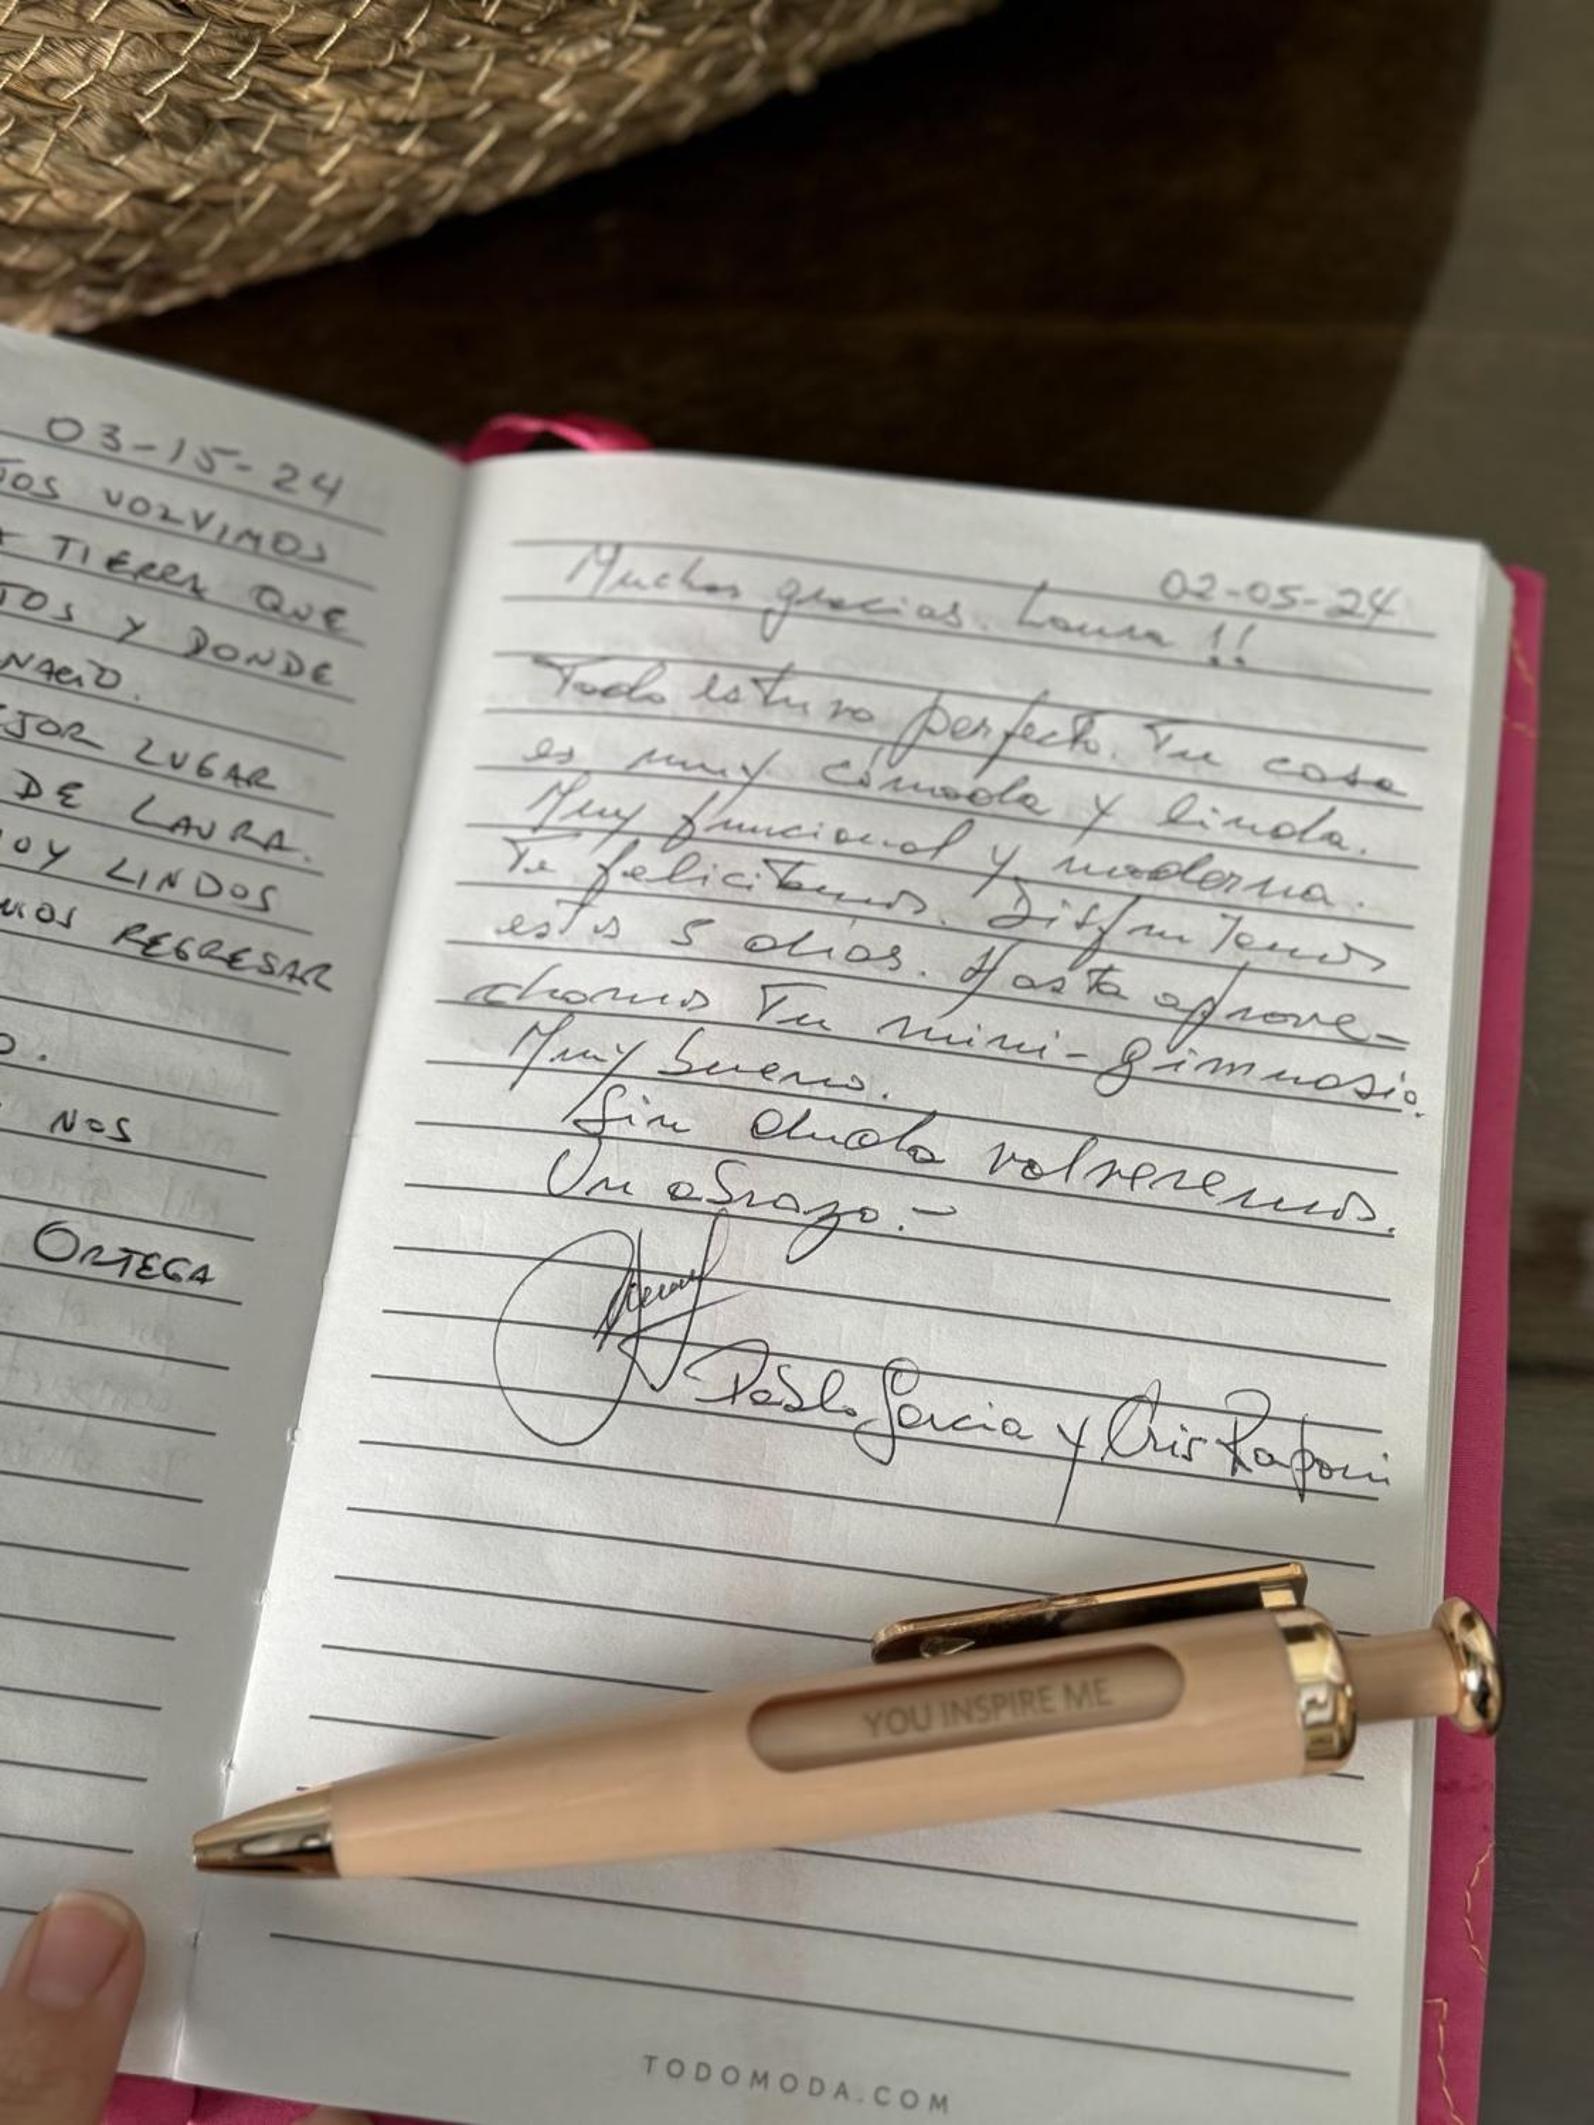 03-15-24
VOLVIMOS
TIERRA QUE
Y DONDE
NACIÓ.
LUGAR
DE LAURA.
LINDOS
REGRESAR
NOS
ORTEGA
02-05-24
Muchas gracias. Laura!!
Todo estuvo perfecto. Tu casa
es muy cómoda y linda.
Muy funcional y moderna.
Te felicitamos. Disfrutamos
estos 5 días. Hasta aprove-
chamos Tu mini-gimnasio.
Muy bueno.
Sin duda volveremos.
Un abrazo.-
Pablo Garcia y Cris Raponi
YOU INSPIRE ME
TODOMODA.COM